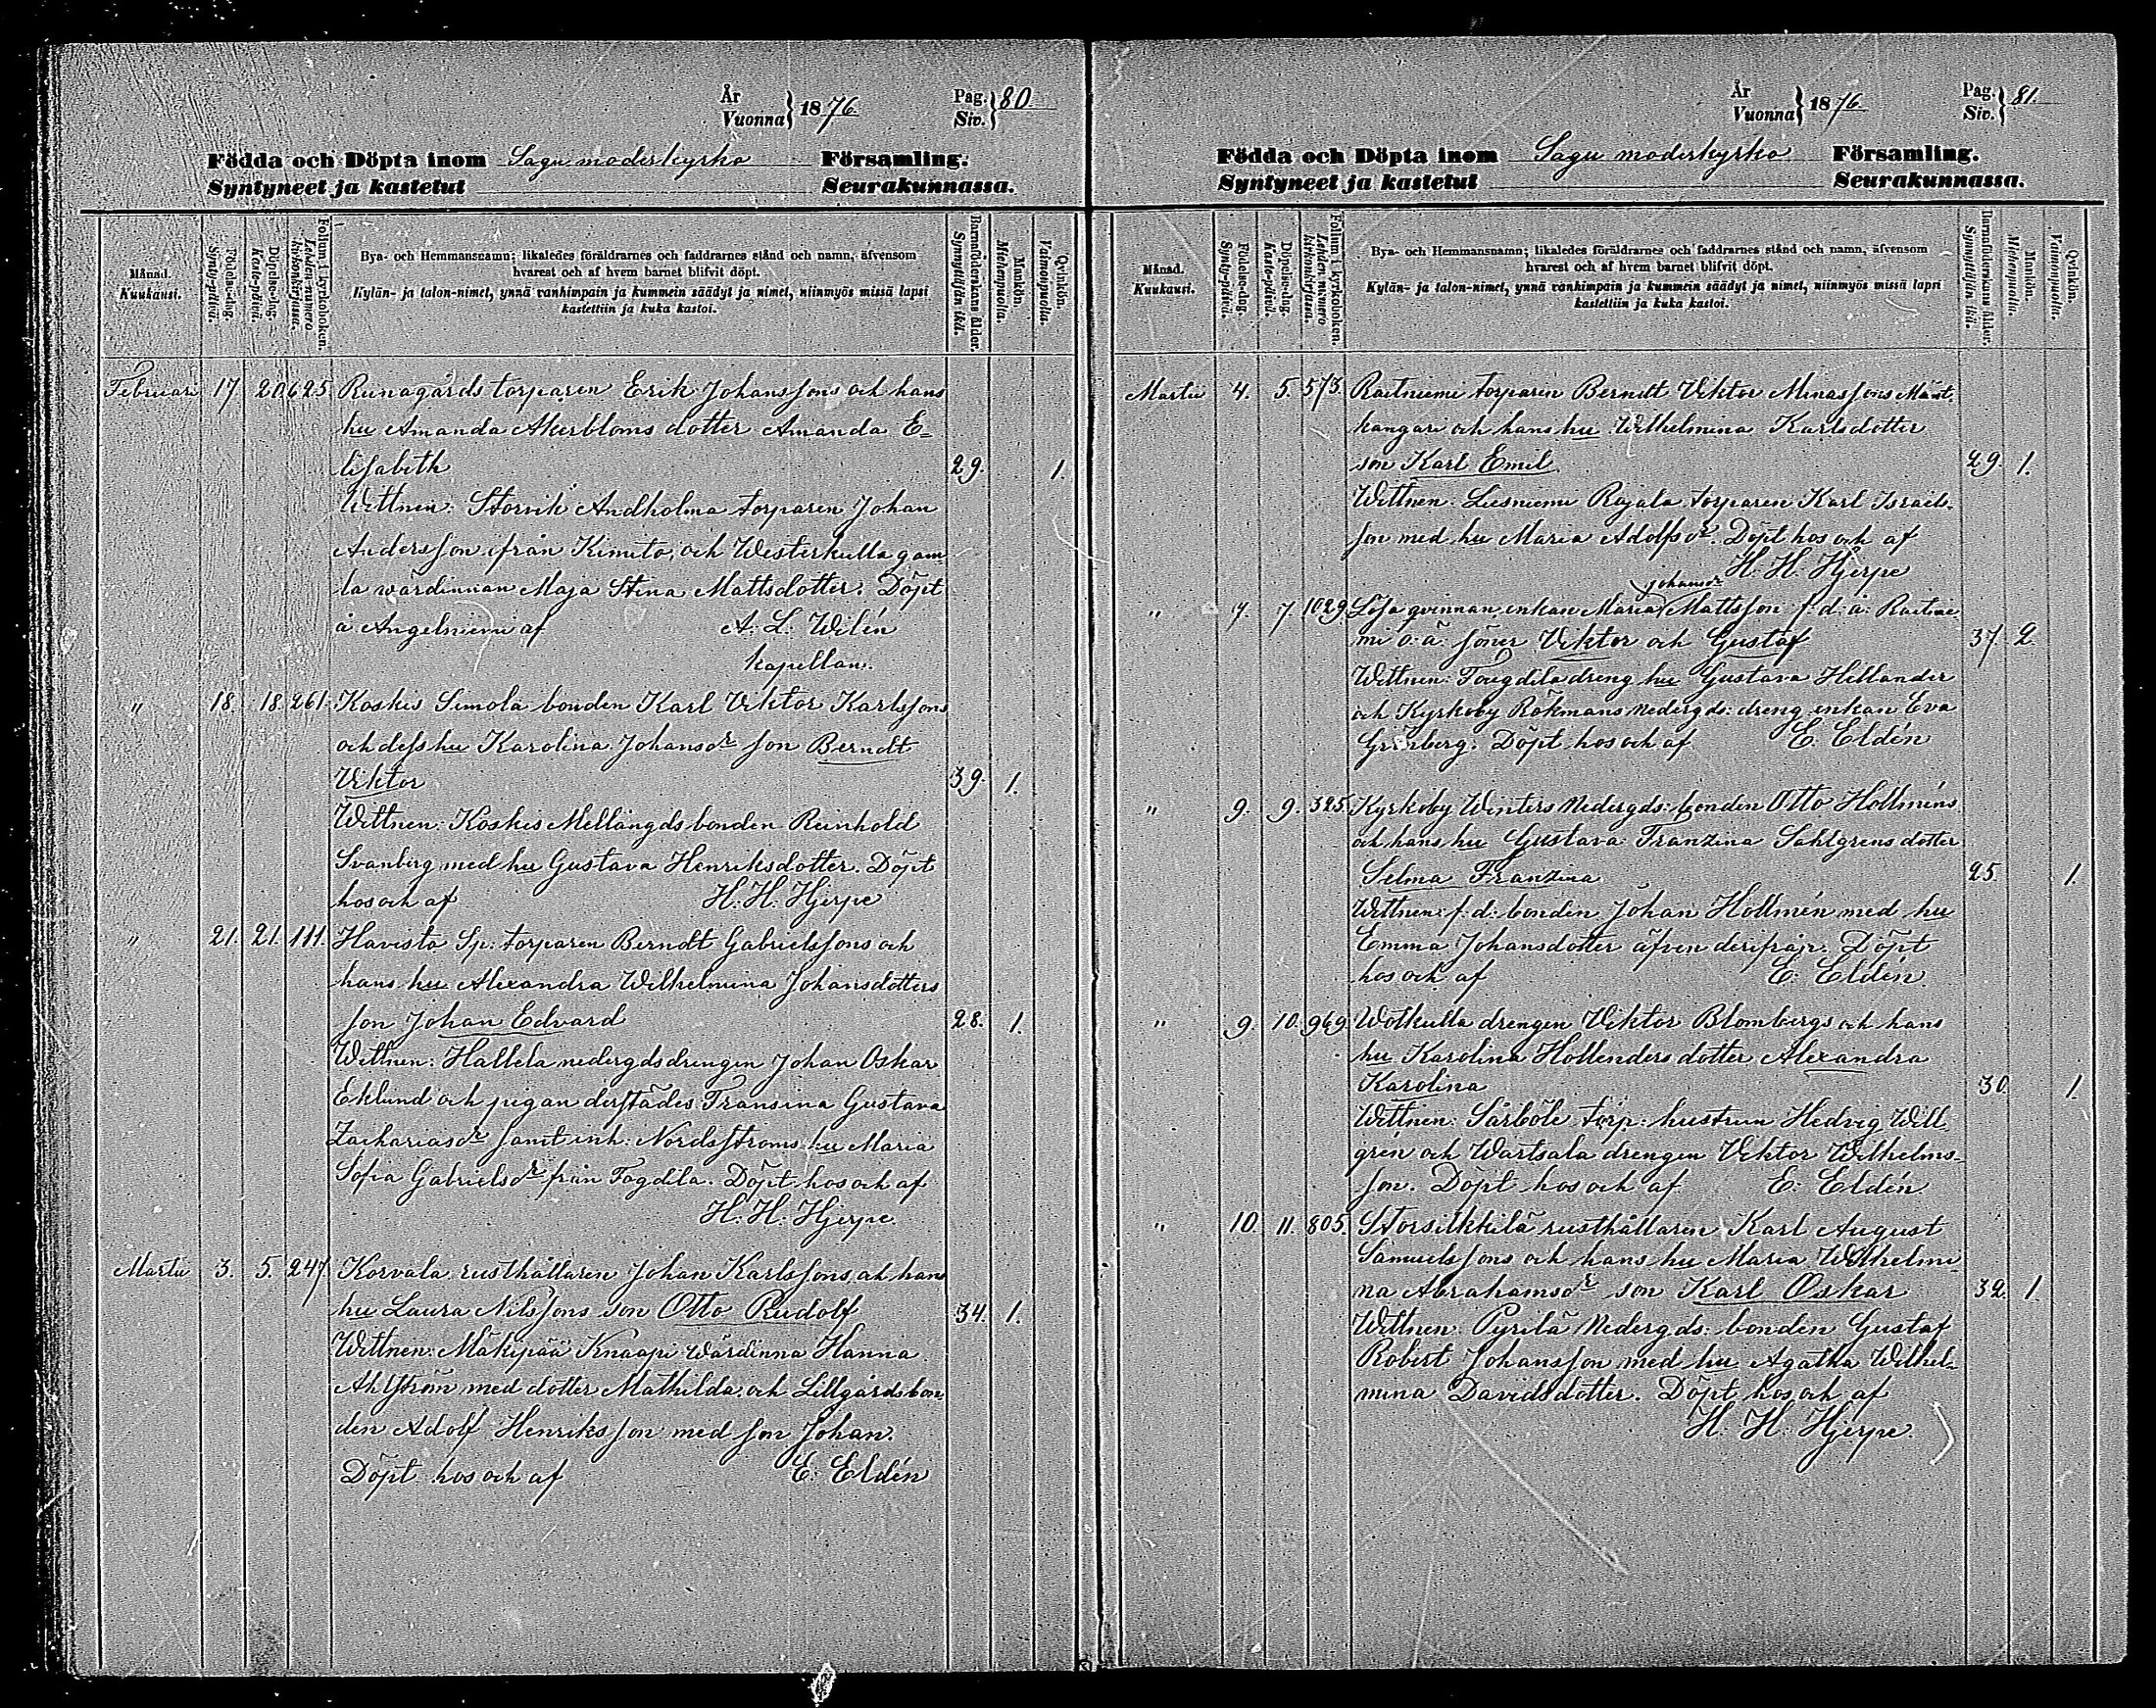 År
Vuonna } 1876.
Pag.
Siv. } 80.
Födda och Döpta inom Sagu moderkyrko Församling.
Syntyneet ja kastetut Seurakunnassa.
Månad.
Kuukausi.
Födelse-dag.
Synty-päivä.
Döpelse-dag.
Kaste-päivä.
Folium i kyrkoboken.
Lehden numero kirkonkirjassa.
Bya- och Hemmansnamn; likaledes föräldrarnes och faddrarnes stånd och namn, äfvensom
hvarest och af hvem barnet blifvit döpt.
Kylän- ja talon-nimet, ynnä vanhimpain ja kummein säädyt ja nimet, niinmyös missä lapsi
kastettiin ja kuka kastoi.
Barnaföderskans ålder.
Synnyttäjän ikä.
Mankön.
Miehenpuolia.
Qvinkön.
Vaimonpuolia.
Februari 17 20 625 Runagårds torparen Erik Johanssons och hans
hu Amanda Åkerbloms dotter Amanda E=
lisabeth 29. 1.
Wittnen: Storvik Andholma torparen Johan
Andersson ifrån Kimito, och Westerkulla gam-
la wärdinnan Maja Stina Mattsdotter. Döpt
i Angelniemi af A. L. Wilén
kapellan.
" 18. 18. 261. Koskis Simola bonden Karl Viktor Karlssons
och dess hu Karolina Johansdr son Berndt
Viktor 39. 1.
Wittnen: Koskis Mellangds bonden Reinhold
Svanberg med hu Gustava Henriksdotter. Döpt
hos och af H. H. Hjerpe
" 21. 21. 111. Havisto Sp: torparen Berndt Gabrielssons och
hans hu Alexandra Wilhelmina Johansdotters
son Johan Edvard 28. 1.
Wittnen: Hallela nedergds drengen Johan Oskar
Eklund och pigan derstädes Fransina Gustava
Zachariasdr samt inh: Nordströms hu Maria
Sofia Gabrielsdr från Togdila. Döpt hos och af
H. H. Hjerpe.
Martii 3. 5. 247. Korvala rusthållaren Johan Karlssons och hans
hu Laura Nilssons son Otto Rudolf 34. 1.
Wittnen: Mäkipää Knaapi wärdinna Hanna
Ahlström med dotter Mathilda, och Lillgårds bon
den Adolf Henriksson med son Johan.
Döpt hos och af E. Eldén
År
Vuonna } 1876.
Pag.
Siv. } 81.
Födda och Döpta inom Sagu moderkyrko Församling.
Syntyneet ja kastetut Seurakunnassa.
Månad.
Kuukausi.
Födelse-dag.
Synty-päivä.
Döpelse-dag.
Kaste-päivä.
Folium i kyrkoboken.
Lehden numero kirkonkirjassa.
Bya- och Hemmansnamn; likaledes föräldrarnes och faddrarnes stånd och namn, äfvensom
hvarest och af hvem barnet blifvit döpt.
Kylän- ja talon-nimet, ynnä vanhimpain ja kummein säädyt ja nimet, niinmyös missä lapsi
kastettiin ja kuka kastoi.
Barnaföderskans ålder.
Synnyttäjän ikä.
Mankön.
Miehenpuolia.
Qvinkön.
Vaimonpuolia.
Martii 4. 5. 573. Raitniemi torparen Berndt Viktor Minassons Mänt
kangari och hans hu Wilhelmina Karlsdotter
son Karl Emil 29. 1.
Wittnen: Liesniemi Rajala torparen Karl Israels-
son med hu Maria Adolfsdr. Döpt hos och af
H. H. Hjerpe
" 7. 7. 1029. Lösa qvinnan enkan Maria Johansdr Mattsson f. d: å: Raitnie
mi o: ä: söner Viktor och Gustaf 37 2.
Wittnen: Tougdila dreng hu Gustava Hellander
och Kyrkoby Rökmans Nedergds: dreng enkan Eva
Grönberg. Döpt hos och af E. Eldén
" 9. 9. 325. Kyrkoby Winters Nedergds: bonden Otto Hollméns
och hans hu Gustava Franzina Sahlgrens dotter
Selma Franzina 25. 1.
Wittnen: f. d: bonden Johan Hollmén med hu
Emma Johansdotter äfven derifrån. Döpt
hos och af E. Eldén.
" 9. 10. 969. Wolkulla drengen Viktor Blombergs och hans
hu Karolina Hollenders dotter Alexandra
Karolina 30. 1.
Wittnen: Särböle torp: hustrun Hedvig Will
grén och Wartsala drengen Viktor Wilhelms-
son. Döpt hos och af E. Eldén
" 10. 11. 805. Storsilkkilä rusthållaren Karl August
Samuelssons och hans hu Maria Wilhelmi
na Abrahamsdr son Karl Oskar 32. 1.
Wittnen: Pyrilä Nedergds: bonden Gustaf
Robert Johansson med hu Agatha Wilhel-
mina Davidsdotter. Döpt hos och af
H. H. Hjerpe.